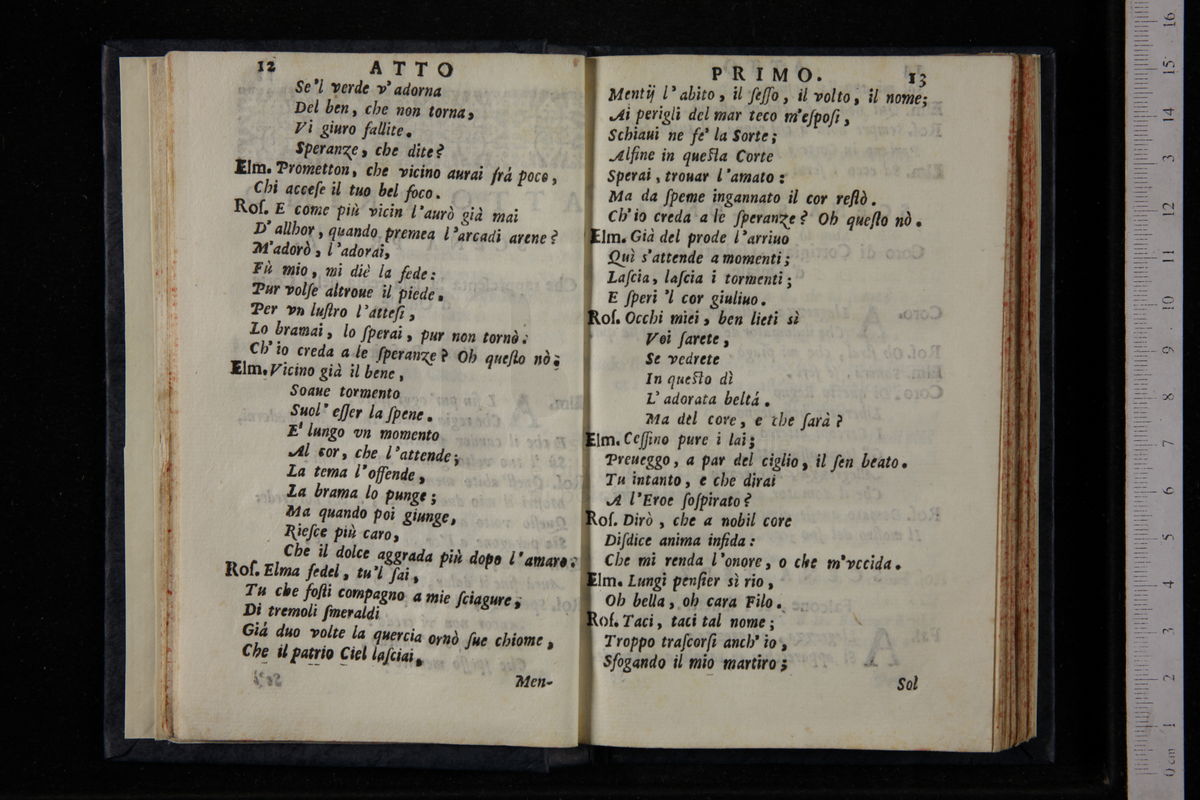 12 ATTO
Se'l verde v'adorna
Del ben, che non torna,
Vi giuro fallite.
Speranze, che dite?
Elm. Prometton, che vicino aurai frá poco,
Chi accese il tuo bel foco.
Ros. E come più vicin l'aurò già mai
D'allhor, quando premea l'arcadi arene?
M'adorò, l'adorai,
Fù mio, mi diè la fede:
Pur volse altroue il piede.
Per vn lustro l'attesi,
Lo bramai, lo sperai, pur non tornò:
Ch'io creda a le speranze? Oh questo nò;
Elm. Vicino già il bene,
Soaue tormento
Suol' esser la spene.
E' lungo vn momento
Al cor, che l'attende;
La tema l'offende,
La brama lo punge;
Ma quando poi giunge,
Riesce più caro,
Che il dolce aggrada più dopo l'amaro:
Ros. Elma fedel, tu'l sai,
Tu che fosti compagno a mie sciagure;
Di tremoli smeraldi
Giá duo volte la quercia ornò sue chiome,
Che il patrio Ciel lasciai,
Men-
PRIMO. 13
Mentij l'abito, il sesso, il volto, il nome;
Ai perigli del mar teco m'esposi,
Schiaui ne fe' la Sorte;
Alfine in questa Corte
Sperai, trouar l'amato:
Ma da speme ingannato il cor restò.
Ch'io creda a le speranze? Oh questo nò.
Elm. Già del prode l'arriuo
Quì s'attende a momenti;
Lascia, lascia i tormenti;
E speri 'l cor giuliuo.
Ros. Occhi miei, ben lieti sì
Voi sarete,
Se vedrete
In questo dì
L'adorata beltá.
Ma del core, e che sarà?
Elm. Cessino pure i lai;
Preueggo, a par del ciglio, il sen beato.
Tu intanto, e che dirai
A l'Eroe sospirato?
Ros. Dirò, che a nobil core
Disdice anima infida:
Che mi renda l'onore, o che m'vccida.
Elm. Lungi pensier sì rio,
Oh bella, oh cara Filo.
Ros. Taci, taci tal nome;
Troppo trascorsi anch'io,
Sfogando il mio martiro;
Sol